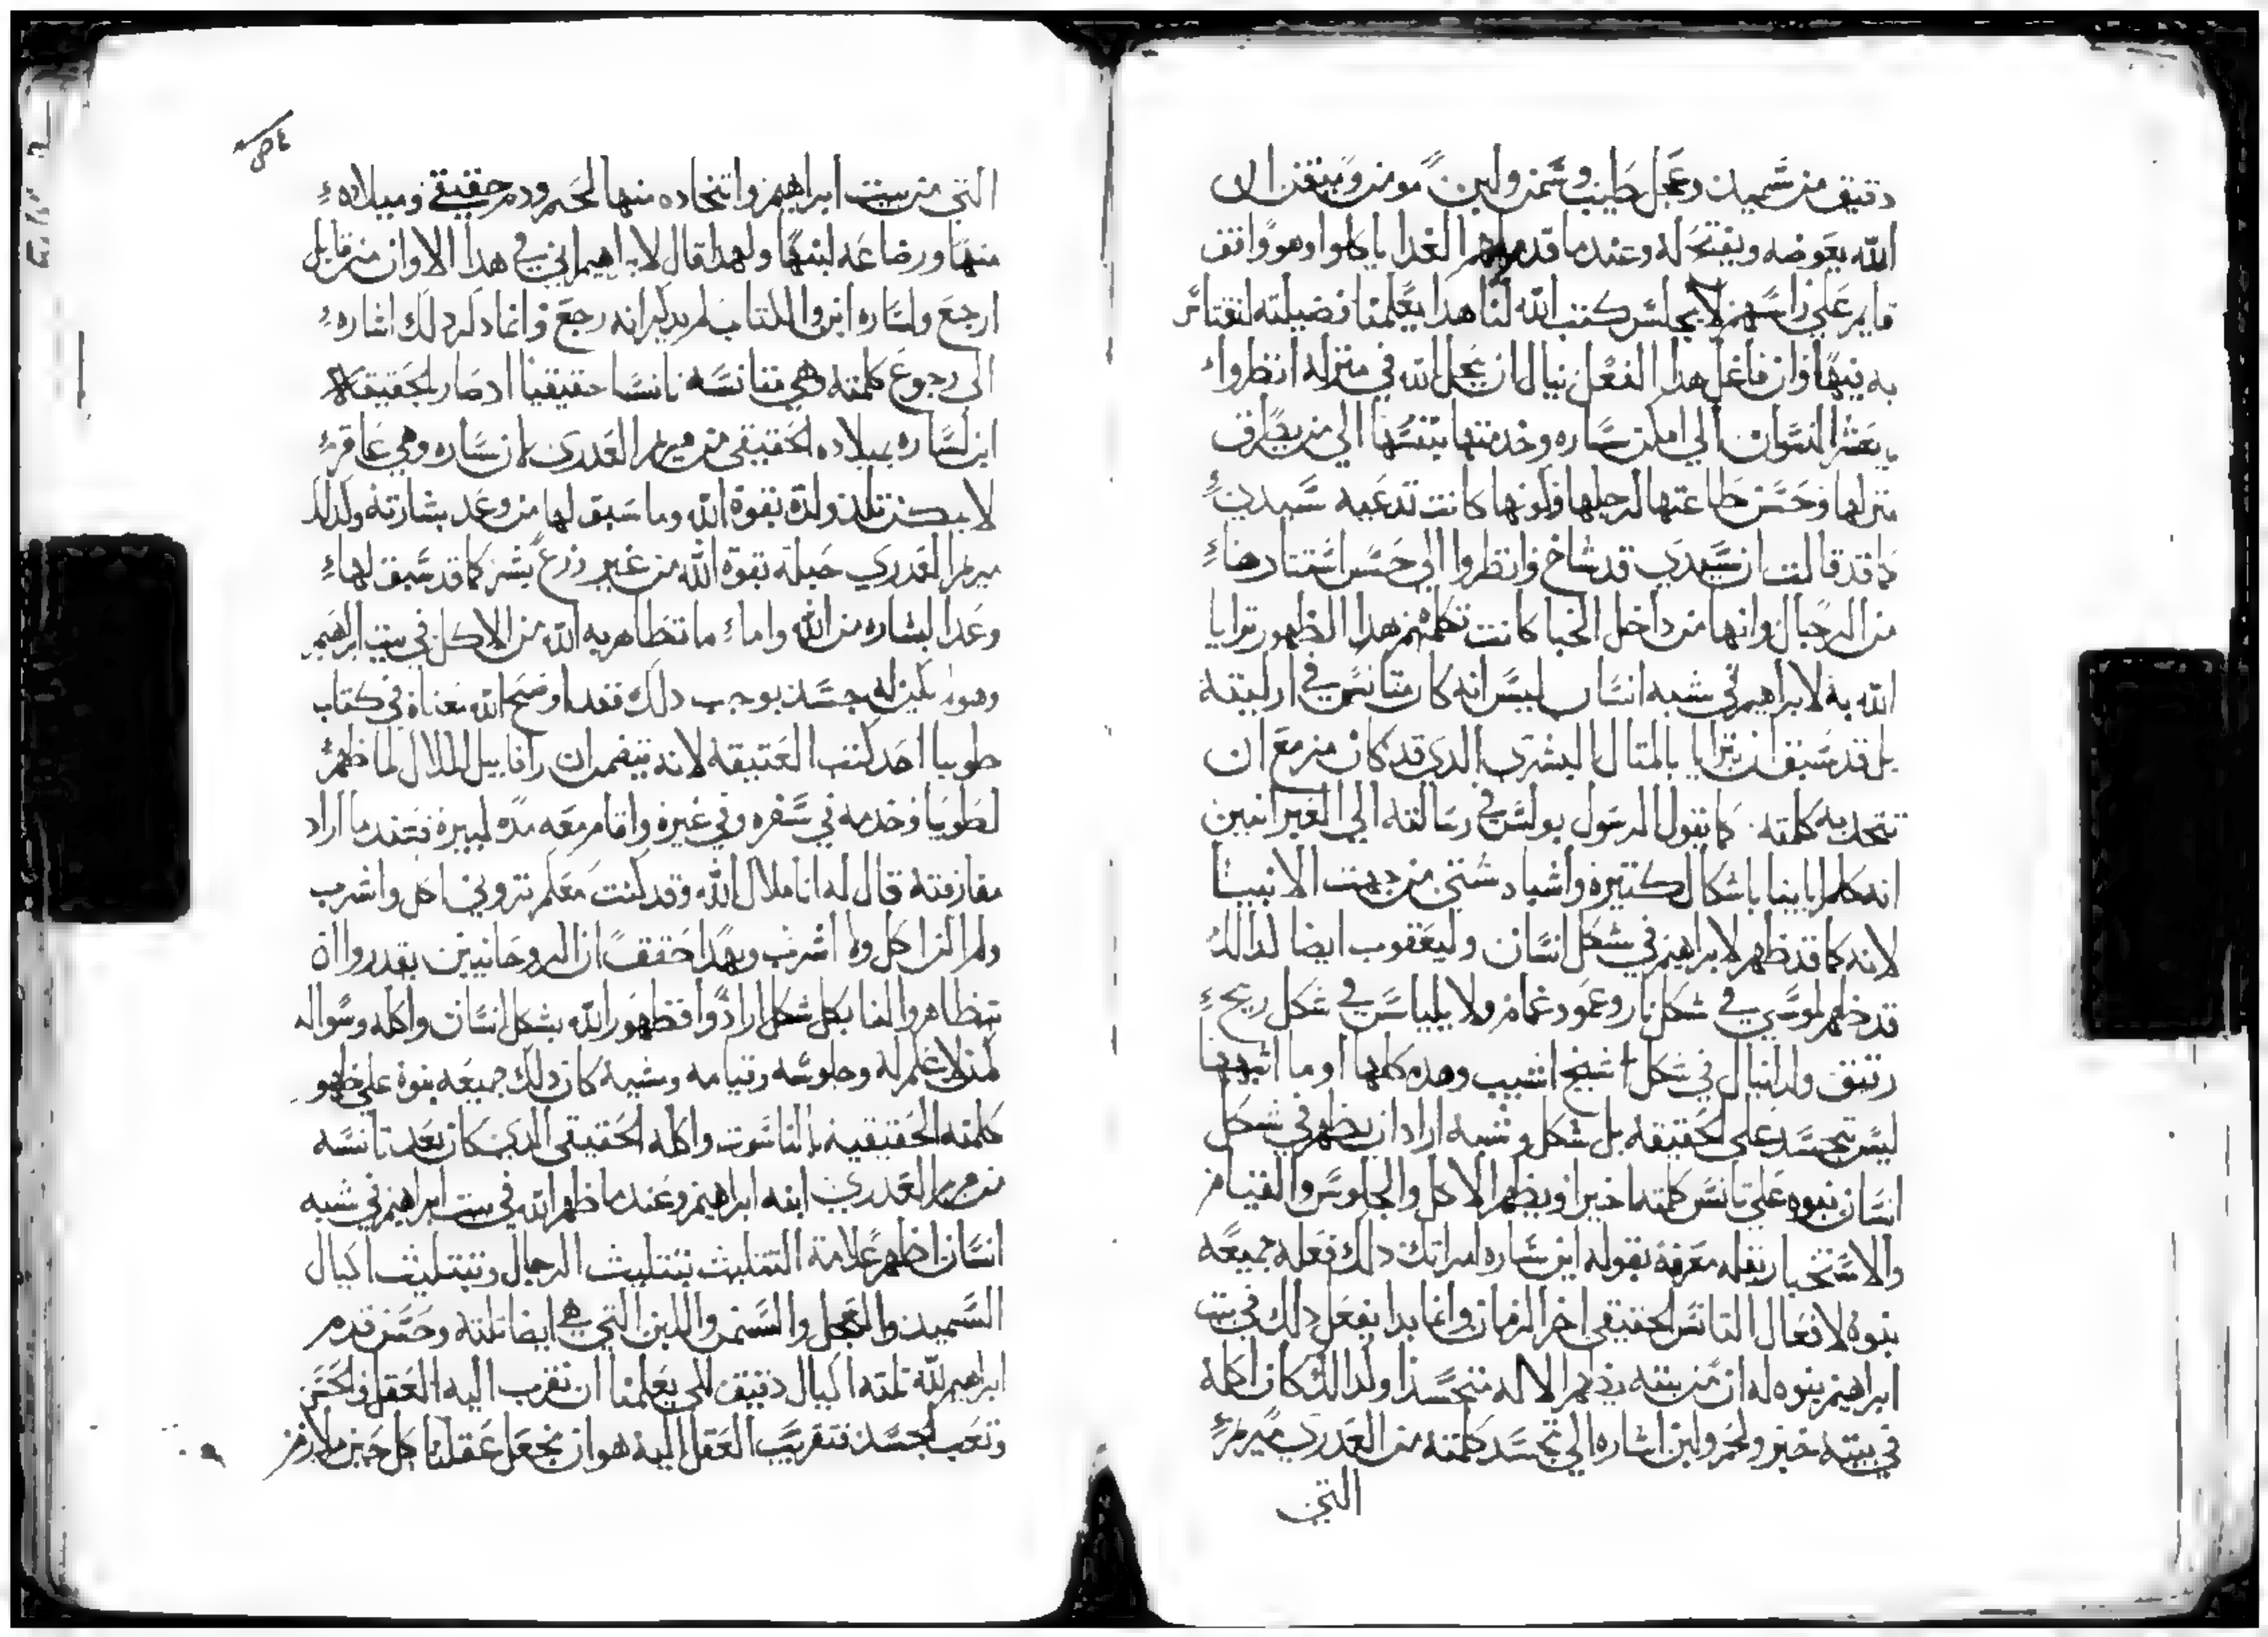 دقيق من سميد وعجل طيب وسمن ولبن مومن ومتيقن ان
الله يعوضه ويفتح له وعندما قدم لهم الغدا ياكلوا وهو واقف
قايم على راسهم لا يجلس كتب الله لنا هدا يعلمنا فضيلته لنقتاس
به فيها وان فاعل هدا الفعل ينال ان يحل الله في منزله انظروا
يا معشر النسوان الي امكن ساره وخدمتها بنفسها الي من يطرق
منزلها وحسن طاعتها لرجلها ولونها كانت تدعيه سيدي
كما قد قالت ان سيدي قد شاخ وانظروا الي حسن استتارها
من الرجال وانها من داخل الخبا كانت تكلمهم هدا الظهور ترايا
الله به لابراهيم في شبه انسان ليس انه كان متانس في ازليته
بل قد سبق ان ترايا بالمتال البشري الدي قد كان مزمع ان
تتحد به كلمته كما يقول الرسول بولس في رسالته الي العبرانيين
انه كلم ابائنا باشكال كتيره واشباه شتي من جهت الانبيا
لانه كما قد ظهر لابراهيم في شكل انسان وليعقوب ايضا لدالك
قد ظهر لموسي في شكل نار وعمود غمام ولايلياس في شكل ريح
رقيق ولدانيال في شكل شيخ اشيب وهده كلها وما اشبهها
ليس تجسد على الحقيقه بل شكل وشبه اراد ان يظهر في شكل
انسان نبوه على تانس كلمته اخيرا ويظهر الاكل والجلوس والقيام
والاستخبار بقله معرفة بقوله اين ساره امراتك دلك فعله جميعه
بنوة لافعال التانس الحقيقي اخر الزمان وانما بدا بفعل دلك في بيت
ابراهيم بنوه له ان من بيته يظهر الاله متجسدا ولدالك كان اكله
في بيته خبز ولحم ولبن اشاره الي تجسد كلمته من العدري مريم
التي
التي من بيت ابراهيم واتخاده منها لحم ودم حقيقي وميلاده
منها ورضاعه لبنها ولهدا قال لابراهيم اني في هدا الاوان من قابل
ارجع ولساره ابن والكتاب لم يدكر انه رجع وانما دكر دلك اشاره
الي رجوع كلمته وهي متانسه تانسا حقيقيا اد صار بالحقيقه
ابن لساره بميلاده الحقيقي من مريم العدري لان ساره وهي عاقر
لا يمكن تلد ولدة بقوة الله وما سبق لها من وعد بشارته ولدلك
مريم العدري حبلة بقوة الله من غير زرع بشر كما قد سبق لها
وعد البشاره من الله واما ما تظاهر به الله من الاكل في بيت ابراهيم
وهو لم يكن له جسد يوجب دلك فقد اوضح الله معناة في كتاب
طوبيا احد كتب العتيقة لانه يتضمن ان رافاييل الملاك لما ظهر
لطوبيا وخدمه في سفره وفي غيره واقام معه مده كبيرة فعندما اراد
مفارقته قال له انا ملاك الله وقد كنت معكم تروني اكل واشرب
ولم انزا كل ولا اشرب وبهدا حقق ان الروحانيين يقدروا ان
يتظاهروا لنا بكل شكل ارادوا فظهور الله بشكل انسان واكله وسواله
لمن لا علم له وجلوسه وقيامه ومشيه كان دلك جميعه بنوة على ظهور
كلمته الحقيقية بالناسوت واكله الحقيقي الدي كان بعد تانسه
من مريم العدري ابنه ابراهيم وعندما ظهر الله في بيت ابراهيم في شبه
انسان اظهر علامة التتليت بتتليث الرجال وبتتليث اكيال
السميد والعجل والسمن واللبن التي هي ايضا تلتة وحسن قدم
ابراهيم لله تلته اكيال دقيق لكي يعلمنا ان نقرب اليه العقل والحس
وتعب الجسد فتقريب العقل اليه هو ان نجعل عقلنا كل حين ملازم